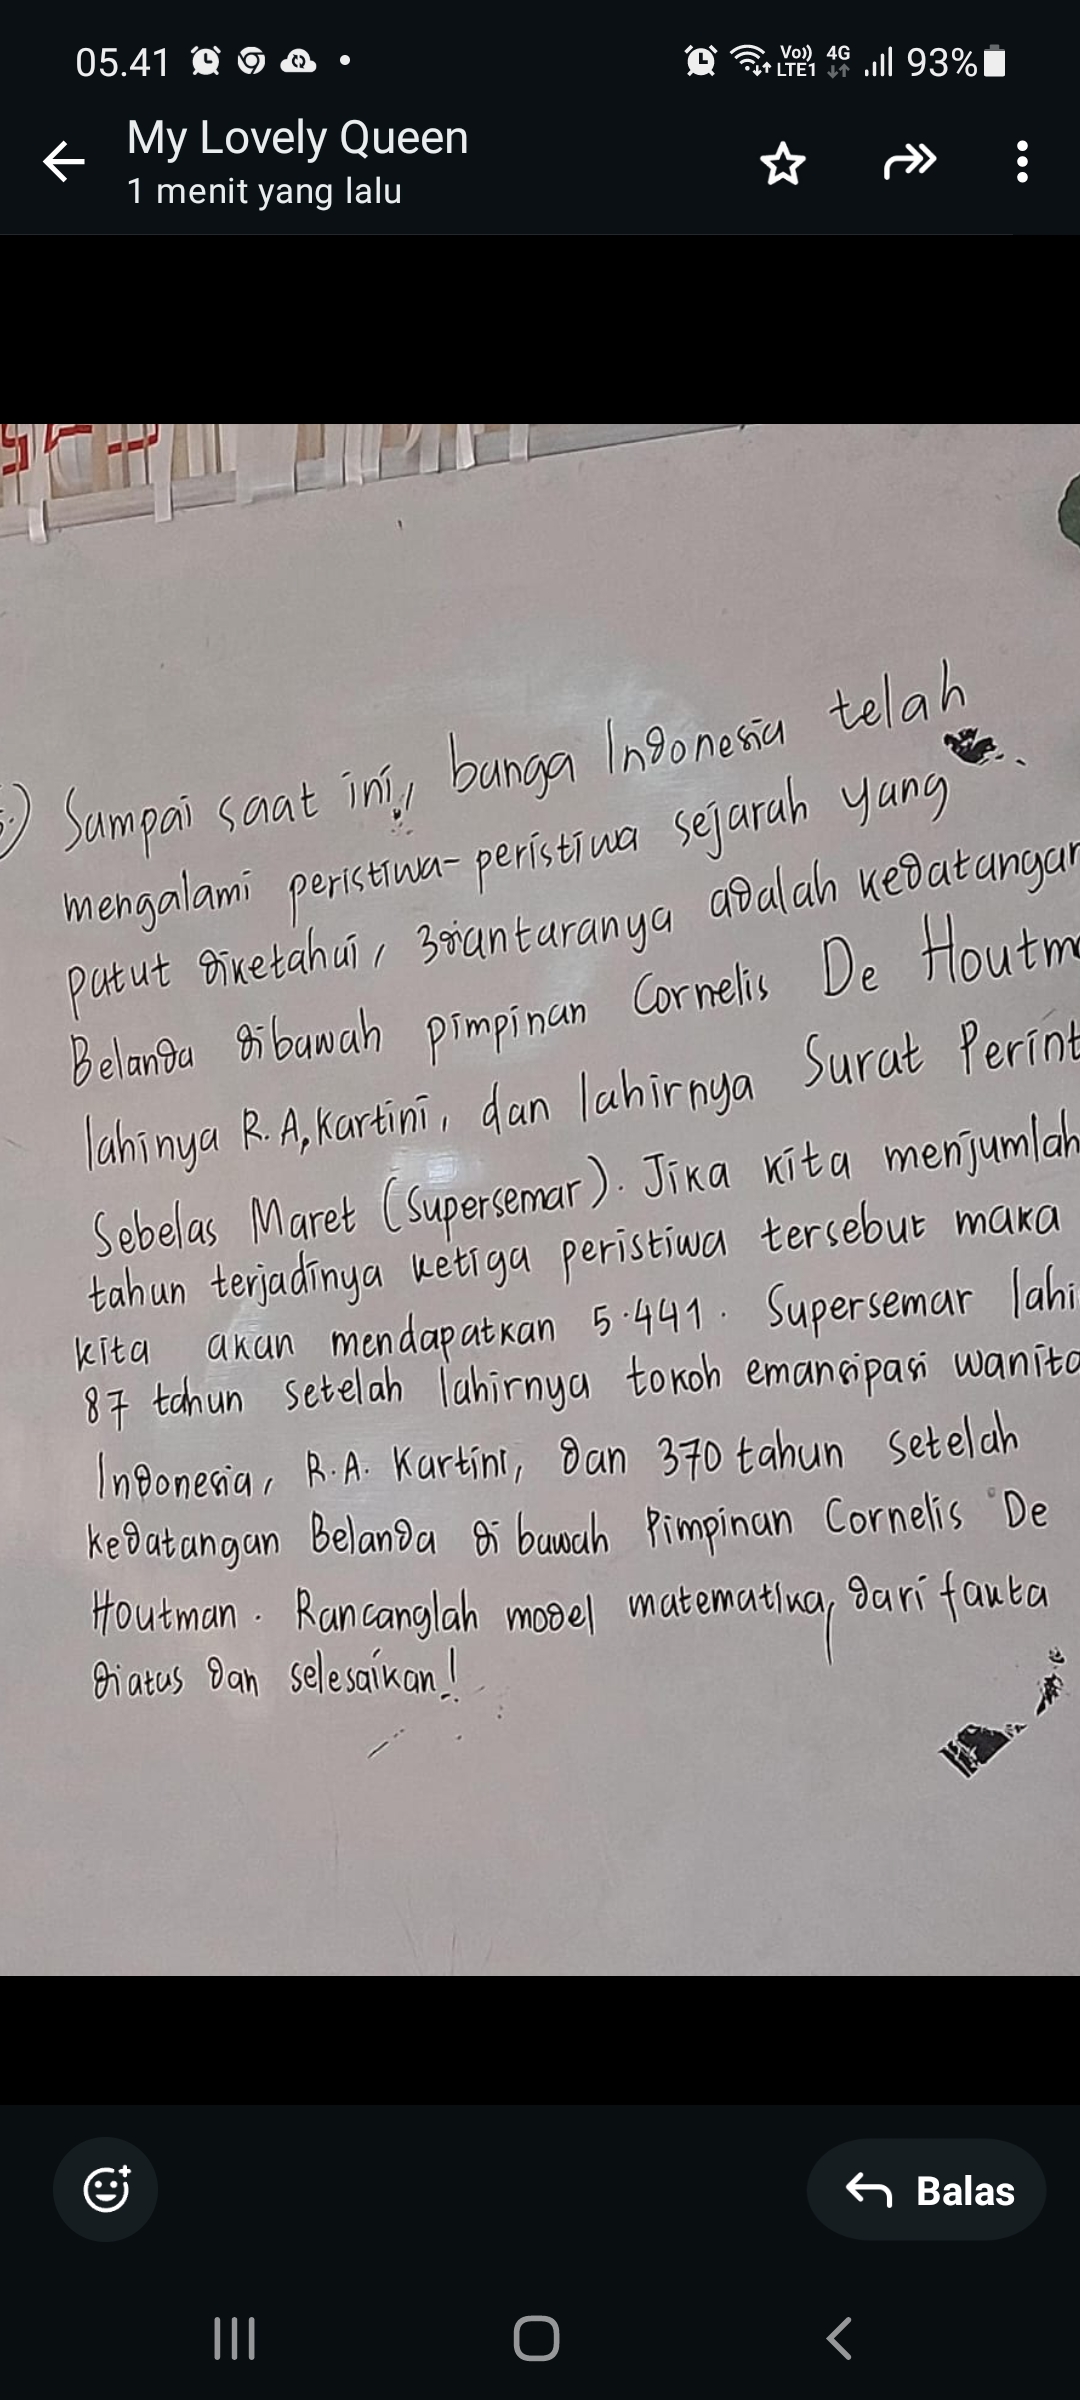 05.41
Vo)) LTE1 4G 93%
My Lovely Queen
1 menit yang lalu
Sampai saat ini, banga Indonesia telah
mengalami peristiwa-peristiwa sejarah yang
patut diketahui, 3diantaranya adalah kedatangan
Belanda dibawah pimpinan Cornelis De Houtm
lahinya R.A, Kartini, dan lahirnya Surat Perint
Sebelas Maret (Supersemar). Jika kita menjumlah
tahun terjadinya ketiga peristiwa tersebut maka
kita akan mendapatkan 5.441. Supersemar lahi
87 tahun setelah lahirnya tokoh emansipasi wanita
Indonesia, R.A. Kartini, dan 370 tahun setelah
kedatangan Belanda di bawah Pimpinan Cornelis De
Houtman. Rancanglah model matematika, dari fakta
diatas dan selesaikan!
Balas